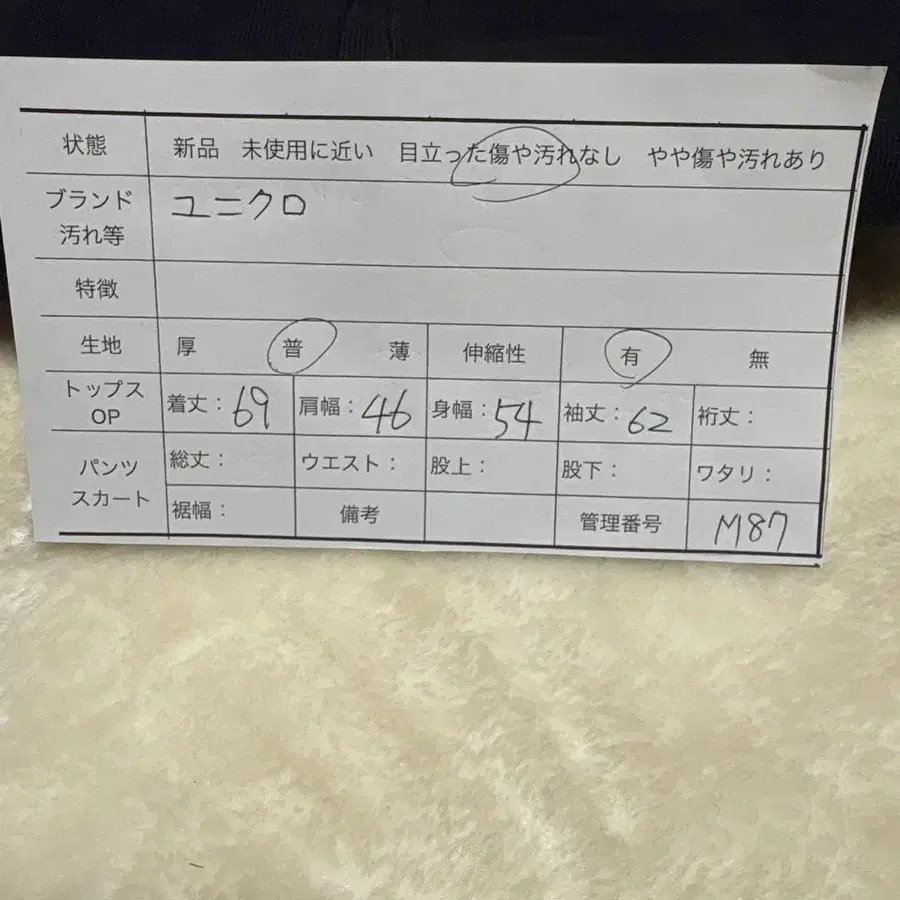 状態 新品 未使用に近い 目立った傷や汚れなし やや傷や汚れあり
ブランド 汚れ等 ユニクロ
特徴
生地 厚 普 薄 伸縮性 有 無
トップス OP 着丈：69 肩幅：46 身幅：54 袖丈：62 裄丈：
パンツ スカート 総丈： ウエスト： 股上： 股下： ワタリ：
裾幅： 備考 管理番号 M87